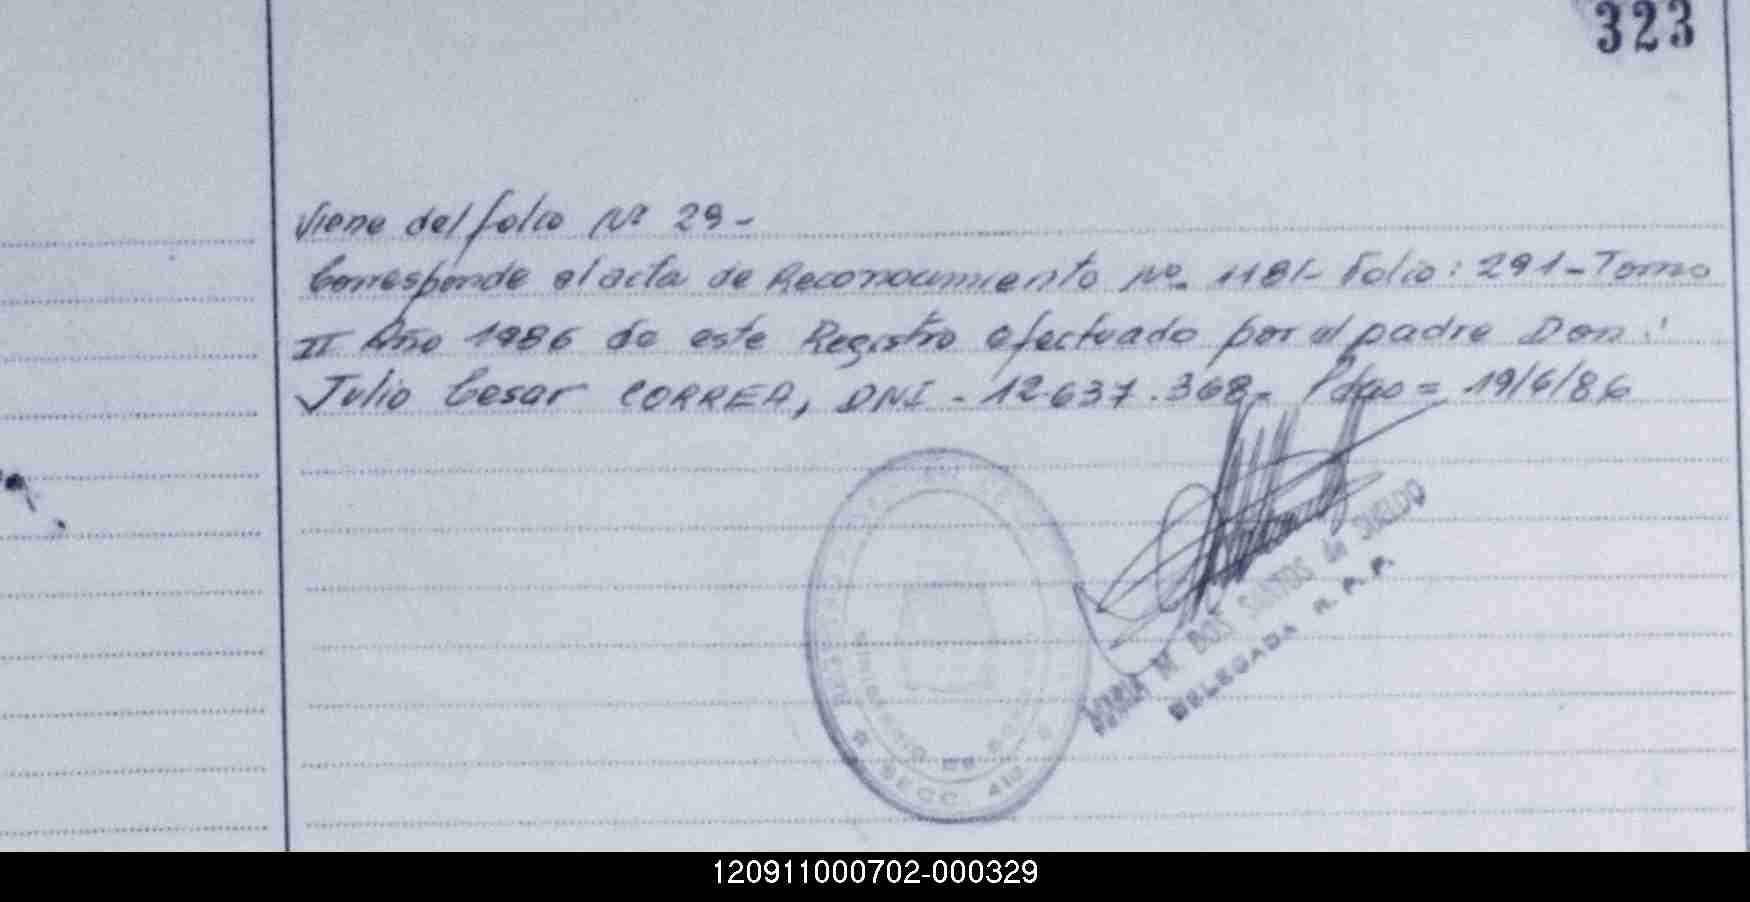 323
Viene del folio Nº 29-
Corresponde al acta de Reconocimiento Nº. 1181- Folio: 291 - Tomo
II Año 1986 de este Registro efectuado por el padre Don:
Julio Cesar CORREA, DNI - 12.637.368- Pdas = 19/6/86
MARIA M. DOS SANTOS de SUELDO
DELEGADA R. P. P.
SECC. 410
120911000702-000329